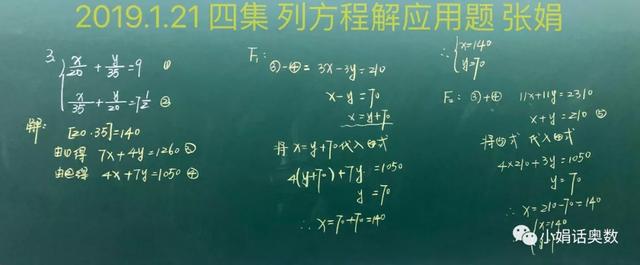 2019.1.21 四集 列方程解应用题 张娟
3. { x/20 + y/35 = 9 ①
x/35 + y/20 = 7 1/2 ②
解: [20·35]=140
由①得 7x+4y=1260 ③
由②得 4x+7y=1050 ④
F₁: ③-④= 3x-3y=210
x-y=70
x=y+70
将 x=y+70代入④式
4(y+70)+7y=1050
y=70
∴x=70+70=140
∴{x=140
y=70
F₂: ③+④ 11x+11y=2310
x+y=210 ⑤
将⑤式 代入④式
4×210+3y=1050
y=70
∴x=210-70=140
{x=140
小娟话奥数